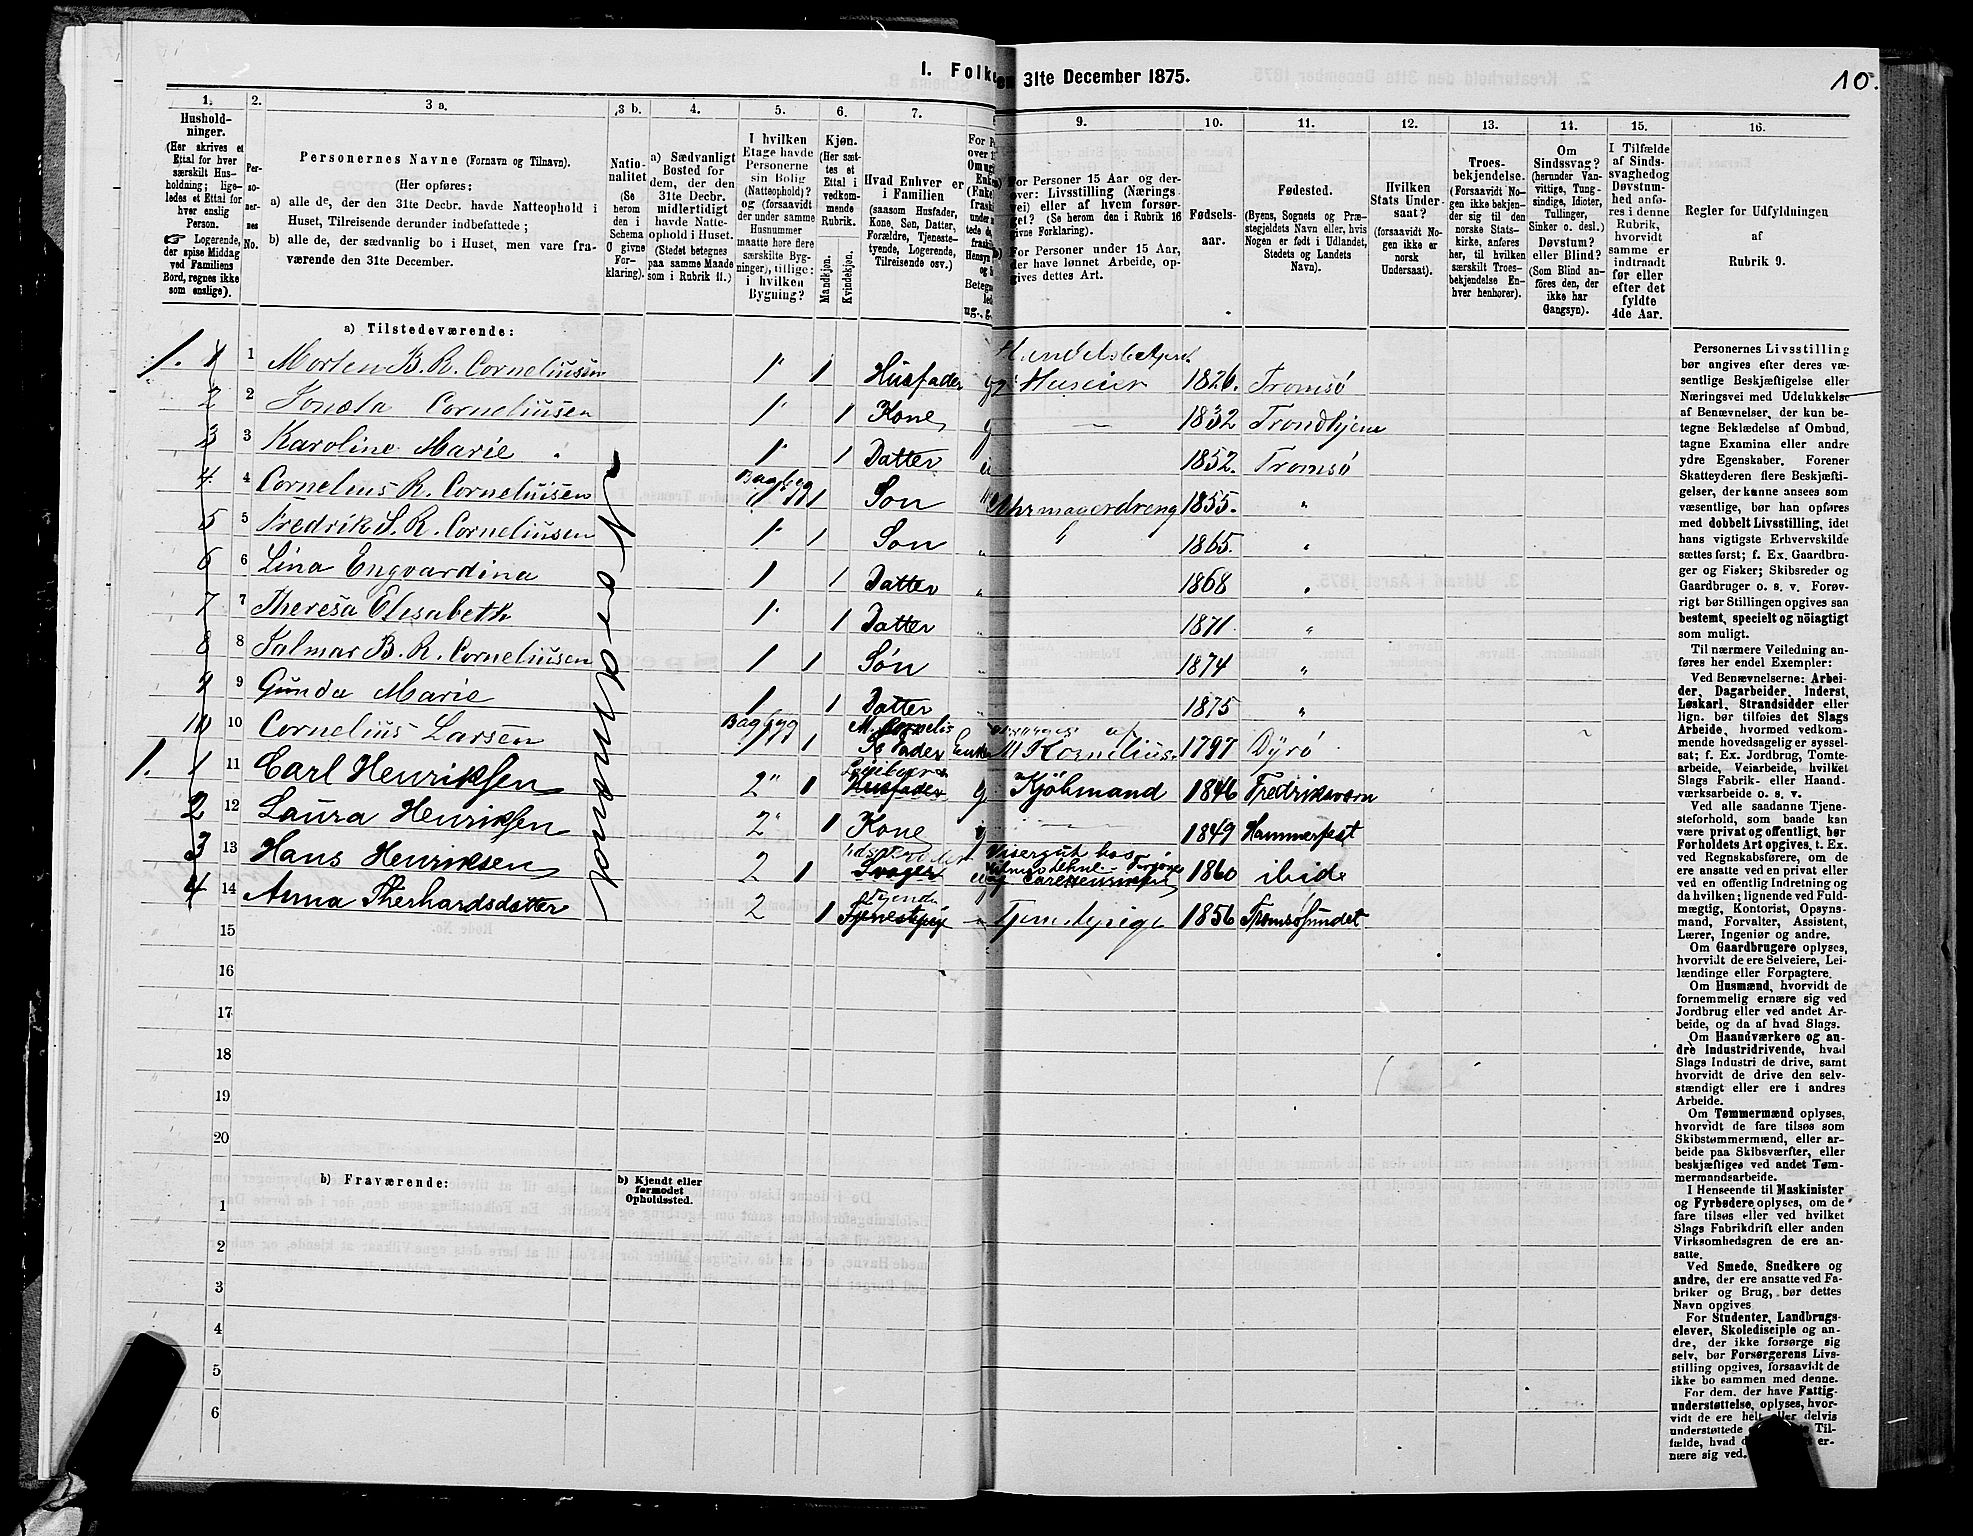 I. Folke
en 31te December 1875.
10.
1.
Hushold-
ninger.
(Her skrives et
Ettal for hver
særskilt Hus-
holdning; lige-
ledes et Ettal for
hver enslig
Person.
☞ Logerende,
der spise Middag
ved Familiens
Bord, regnes ikke
som enslige).
2.
Per-
so-
ner-
nes
No.
3 a.
Personernes Navne (Fornavn og Tilnavn).
(Her opføres:
a) alle de, der den 31te Decbr. havde Natteophold i
Huset, Tilreisende derunder indbefattede;
b) alle de, der sædvanlig bo i Huset, men vare fra-
værende den 31te December).
3 b.
Natio-
nalitet
(Se
herom
den i
Schema
O givne
For-
klaring).
4.
a) Sædvanligt
Bosted for
dem, der den
31te Decbr.
midlertidigt
havde Natte-
ophold i Huset.
(Stedet betegnes
paa samme Maade
som i Rubrik 11.)
5.
I hvilken
Etage havde
Personerne
sin Bolig
(Natteophold)?
og (forsaavidt
der under samme
Husnummer
maatte høre flere
særskilte Byg-
ninger), tillige:
i hvilken
Bygning?
6.
Kjøn.
(Her sæt-
tes et
Ettal i
vedkom-
mende
Rubrik.
Mandkjøn.
Kvindekjøn.
7.
Hvad Enhver er
i Familien
(saasom Husfader,
Kone, Søn, Datter,
Forældre, Tjeneste-
tyende, Logerende,
Tilreisende osv.)
9.
For Personer 15 Aar og der-
over: Livsstilling (Nærings
vei) eller af hvem forsør-
get? (Se herom den i Rubrik 16
givne Forklaring).
b) For Personer under 15 Aar,
der have lønnet Arbeide, op-
gives dettes Art.
10.
Fødsels-
aar.
11.
Fødested.
(Byens, Sognets og Præ-
stegjeldets Navn eller, hvis
Nogen er født i Udlandet,
Stedets og Landets
Navn).
12.
Hvilken
Stats Under-
saat?
(forsaavidt No-
gen ikke er
norsk
Undersaat).
13.
Troes-
bekjendelse.
(Forsaavidt No-
gen ikke bekjen-
der sig til den
norske Stats-
kirke, anføres
her, til hvilken
særskilt Troes-
bekjendelse En-
hver henhører).
14.
Om
Sindssvag?
(herunder Van-
vittige, Tung-
sindige, Idioter,
Tullinger,
Sinker o. desl.)
Døvstum?
eller Blind?
(Som Blind an-
føres den, der
ikke har
Gangsyn).
15.
I Tilfælde
af Sinds-
svaghedog
Døvstum-
hed anfø-
res i denne
Rubrik,
hvorvidt
samme er
indtraadt
før eller
efter det
fyldte
4de Aar.
16.
Regler for Udfyldningen
af
Rubrik 9.
a) Tilstedeværende:
1. 1 1 Morten B. R. Corneliusen 1 1 Husfader g Huseier 1826. Tromsø
2 2 Corneliusen 1 1 Kone g 1832 Trondhjem
3 3 Karoline Marie 1 1 Datter 1852. Tromsø
4 4 Cornelius R. Corneliusen Bagbyg 1 Søn Uhrmagerdreng 1855. "
5 5 Fredrik S. R. Corneliusen 1 1 Søn " 1865. "
6 6 Lina Engvardina 1 1 Datter " 1868 "
7 7 Theresa Elisabeth 1 1 Datter " 1871. "
8 8 Jalmar B. R. Corneliusen 1 1 Søn " 1874 "
9 Gunda Marie 1 1 Datter 1875 "
10 10 Cornelius Larsen Bagbygg 1 Fader Enke M Kornelius. 1797 Dyrø
1. 1 11 Carl Henriksen 2 1 Husfader g Kjøbmand 1846 Fredriksværn
2 12 Laura Henriksen 2 1 Kone g 1849 Hammerfest
3 13 Hans Henriksen 2 1 Visergut hos 1860 ibide
4 14 Anna Therhardsdatter 2 1 Tjenestepig Tjenestepige 1856 Tromsøsundet
Norsk
15
16
17
18
19
20
b) Fraværende:
b) Kjendt eller
formodet
Opholdssted.
1
2
3
4
5
6
Personernes Livsstilling
bør angives efter deres væ-
sentlige Beskjæftigelse eller
Næringsvei med Udelukkelse
af Benævnelser, der kun be-
tegne Beklædelse af Ombud,
tagne Examina eller andre
ydre Egenskaber. Forener
Skatteyderen flere Beskjæfti-
gelser, der kunne ansees som
væsentlige, bør han opføres
med dobbelt Livsstilling, idet
hans vigtigste Erhvervskilde
sættes først; f. Ex. Gaardbru-
ger og Fisker; Skibsreder og
Gaardbruger o. s. v. Forøv-
rigt bør Stillingen opgives saa
bestemt, specielt og nöiagtigt
som muligt.
Til nærmere Veiledning an-
føres her endel Exempler:
Ved Benævnelserne: Arbei-
der, Dagarbeider, Inderst,
Løskarl, Strandsidder eller
lign. bør tilføies det Slags
Arbeide, hvormed vedkom-
mende hovedsagelig er syssel-
sat; f. Ex. Jordbrug, Tomte-
arbeide, Veiarbeide, hvilket
Slags Fabrik- eller Haand-
værksarbeide o. s. v.
Ved alle saadanne Tjene-
steforhold, som baade kan
være privat og offentligt, bør
Forholdets Art opgives, t. Ex.
ved Regnskabsførere, om de
ere ansatte ved en privat eller
ved en offentlig Indretning og
da hvilken; lignende ved Fuld-
mægtig, Kontorist, Opsyns-
mand, Forvalter, Assistent,
Lærer, Ingeniør og andre.
Om Gaardbrugere oplyses,
hvorvidt de ere Selveiere, Lei-
lændinge eller Forpagtere.
Om Husmænd, hvorvidt de
fornemmelig ernære sig ved
Jordbrug eller ved andet Ar-
beide, og da af hvad Slags.
Om Haandværkere og an-
dre Industridrivende, hvad
Slags Industri de drive, samt
hvorvidt de drive den selv-
stændigt eller ere i andres
Arbeide.
Om Tømmermænd oplyses,
hvorvidt de fare tilsøs som
Skibstømmermænd, eller ar-
beide paa Skibsværfter, eller
beskjæftiges ved andet Tøm-
mermandsarbeide.
I Henseende til Maskinister
og Fyrbødere oplyses, om de
fare tilsøs eller ved hvilket
Slags Fabrikdrift eller anden
Virksomhedsgren de ere an-
satte.
Ved Smede, Snedkere og
andre, der ere ansatte ved Fa-
briker og Brug, bør dettes
Navn opgives
For Studenter, Landbrugs-
elever, Skoledisciple og an-
dre, der ikke forsørge sig
selv, bør Forsørgerens Livs-
stilling opgives, forsaavidt de
ikke bo sammen med denne.
For dem, der have Fattig-
understøttelse, oplyses, hvor-
vidt de ere helt eller delvis
understøttede
nære sig ved.